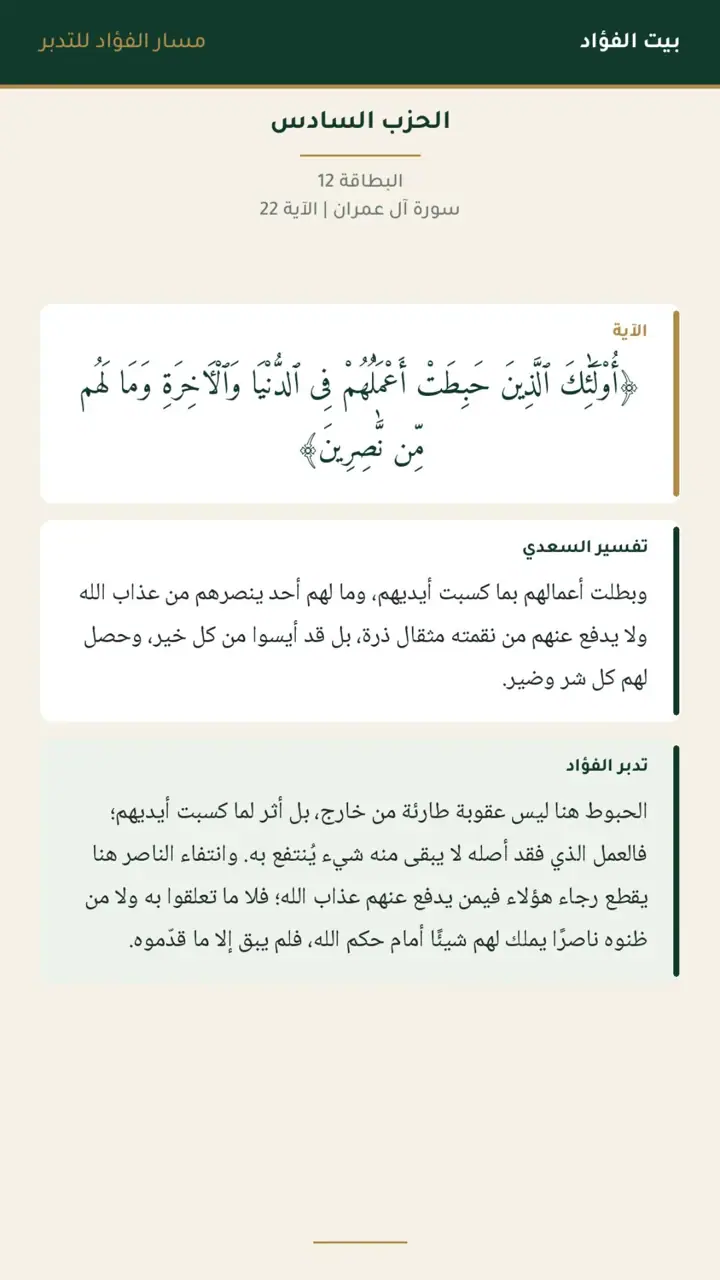 بيت الفؤاد
مسار الفؤاد للتدبر
الحزب السادس
البطاقة 12
سورة آل عمران | الآية 22
الآية
﴿أُو۟لَٰٓئِكَ ٱلَّذِينَ حَبِطَتْ أَعْمَٰلُهُمْ فِى ٱلدُّنْيَا وَٱلْءَاخِرَةِ وَمَا لَهُم
مِّن نَّٰصِرِينَ﴾
تفسير السعدي
وبطلت أعمالهم بما كسبت أيديهم، وما لهم أحد ينصرهم من عذاب الله
ولا يدفع عنهم من نقمته مثقال ذرة، بل قد أيسوا من كل خير، وحصل
لهم كل شر وضير.
تدبر الفؤاد
الحبوط هنا ليس عقوبة طارئة من خارج، بل أثر لما كسبت أيديهم؛
فالعمل الذي فقد أصله لا يبقى منه شيء يُنتفع به. وانتفاء الناصر هنا
يقطع رجاء هؤلاء فيمن يدفع عنهم عذاب الله؛ فلا ما تعلقوا به ولا من
ظنوه ناصرًا يملك لهم شيئًا أمام حكم الله، فلم يبق إلا ما قدّموه.